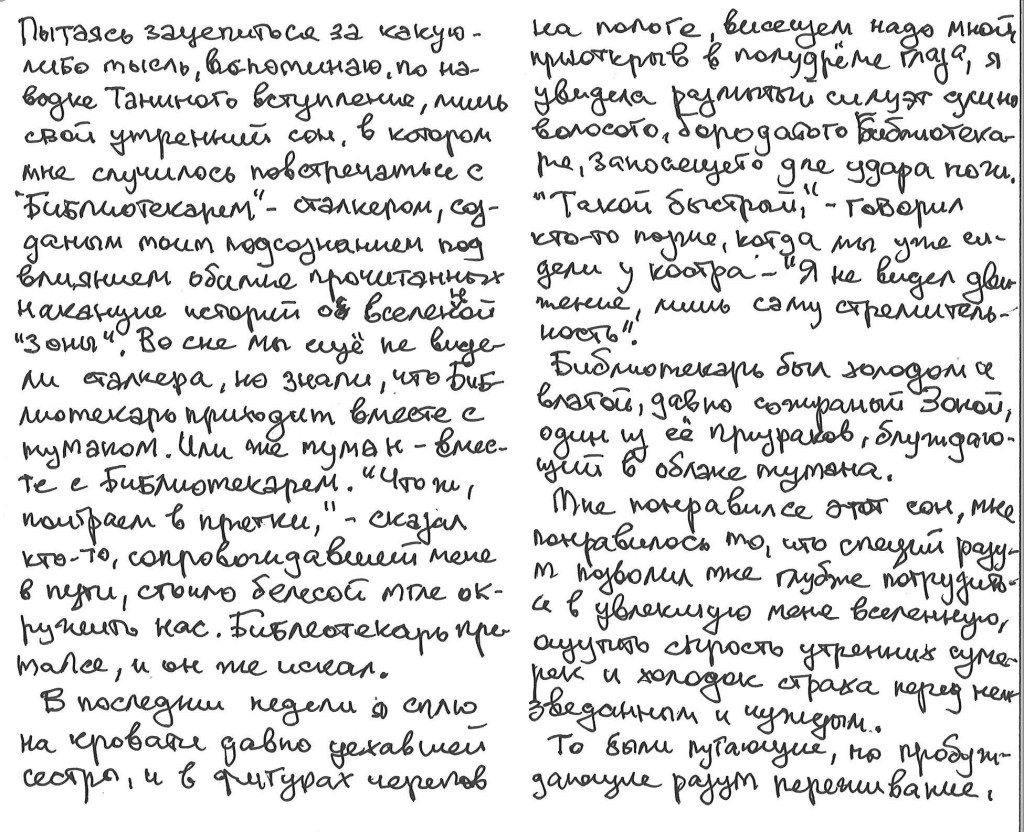 Пытаясь зацепиться за какую-
либо мысль, вспоминаю, по на-
водке Таниного вступления, лишь
свой утренний сон, в котором
мне случилось повстречаться с
"Библиотекарем" - сталкером, соз-
даным моим подсознанием под
влиянием обилия прочитанных
накануне историй об вселеной
"Зоны". Во сне мы ещё не виде-
ли сталкера, но знали, что Биб-
лиотекарь приходит вместе с
туманом. Или же туман - вмес-
те с Библиотекарем. "Что ж,
поиграем в прятки," - сказал
кто-то, сопровождавший меня
в пути, стоило белесой мгле ок-
ружить нас. Библиотекарь пря-
тался, и он же искал.
В последнии недели я сплю
на кровати давно уехавшей
сестры, и в фигурах черепов
на пологе, висящем надо мной,
приоткрыв в полудрёме глаза, я
увидела размытый силуэт длино
волосого, бородатого Библиотека-
ря, заносящего для удара ноги.
"Такой быстрой," - говорил
кто-то позже, когда мы уже си-
дели у костра - "Я не видел дви-
жение, лишь саму стремитель-
ность".
Библиотекарь был холодом и
влагой, давно сожраный Зоной,
один из её призраков, блуждаю-
щий в облаке тумана.
Мне понравился этот сон, мне
понравилось то, что спящий разу-
м позволил мне глубже погрузить-
ся в увлекшую меня вселенную,
ощутить сырость утренних суме-
рек и холодок страха перед неи-
зведанным и чуждым.
То были пугающие, но пробуж-
дающие разум переживание.